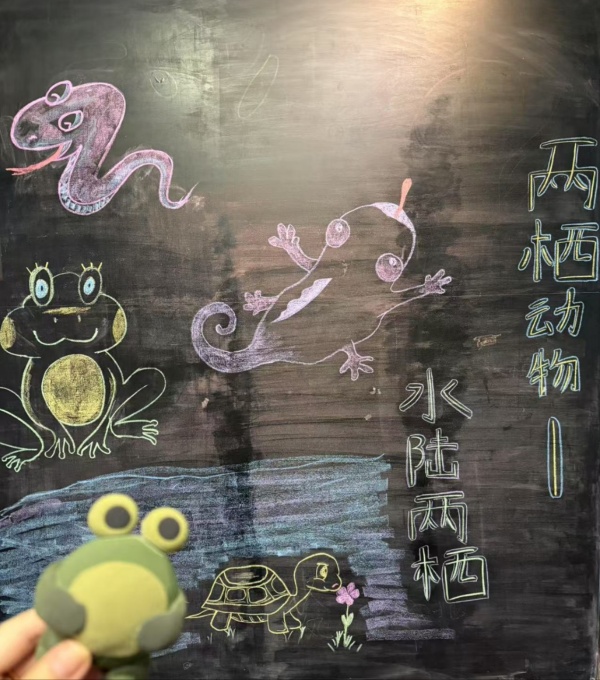 两栖动物—
水陆两栖